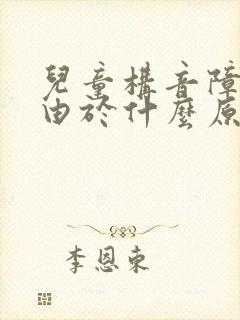 兒童構音障
由於什麼原
李恩東